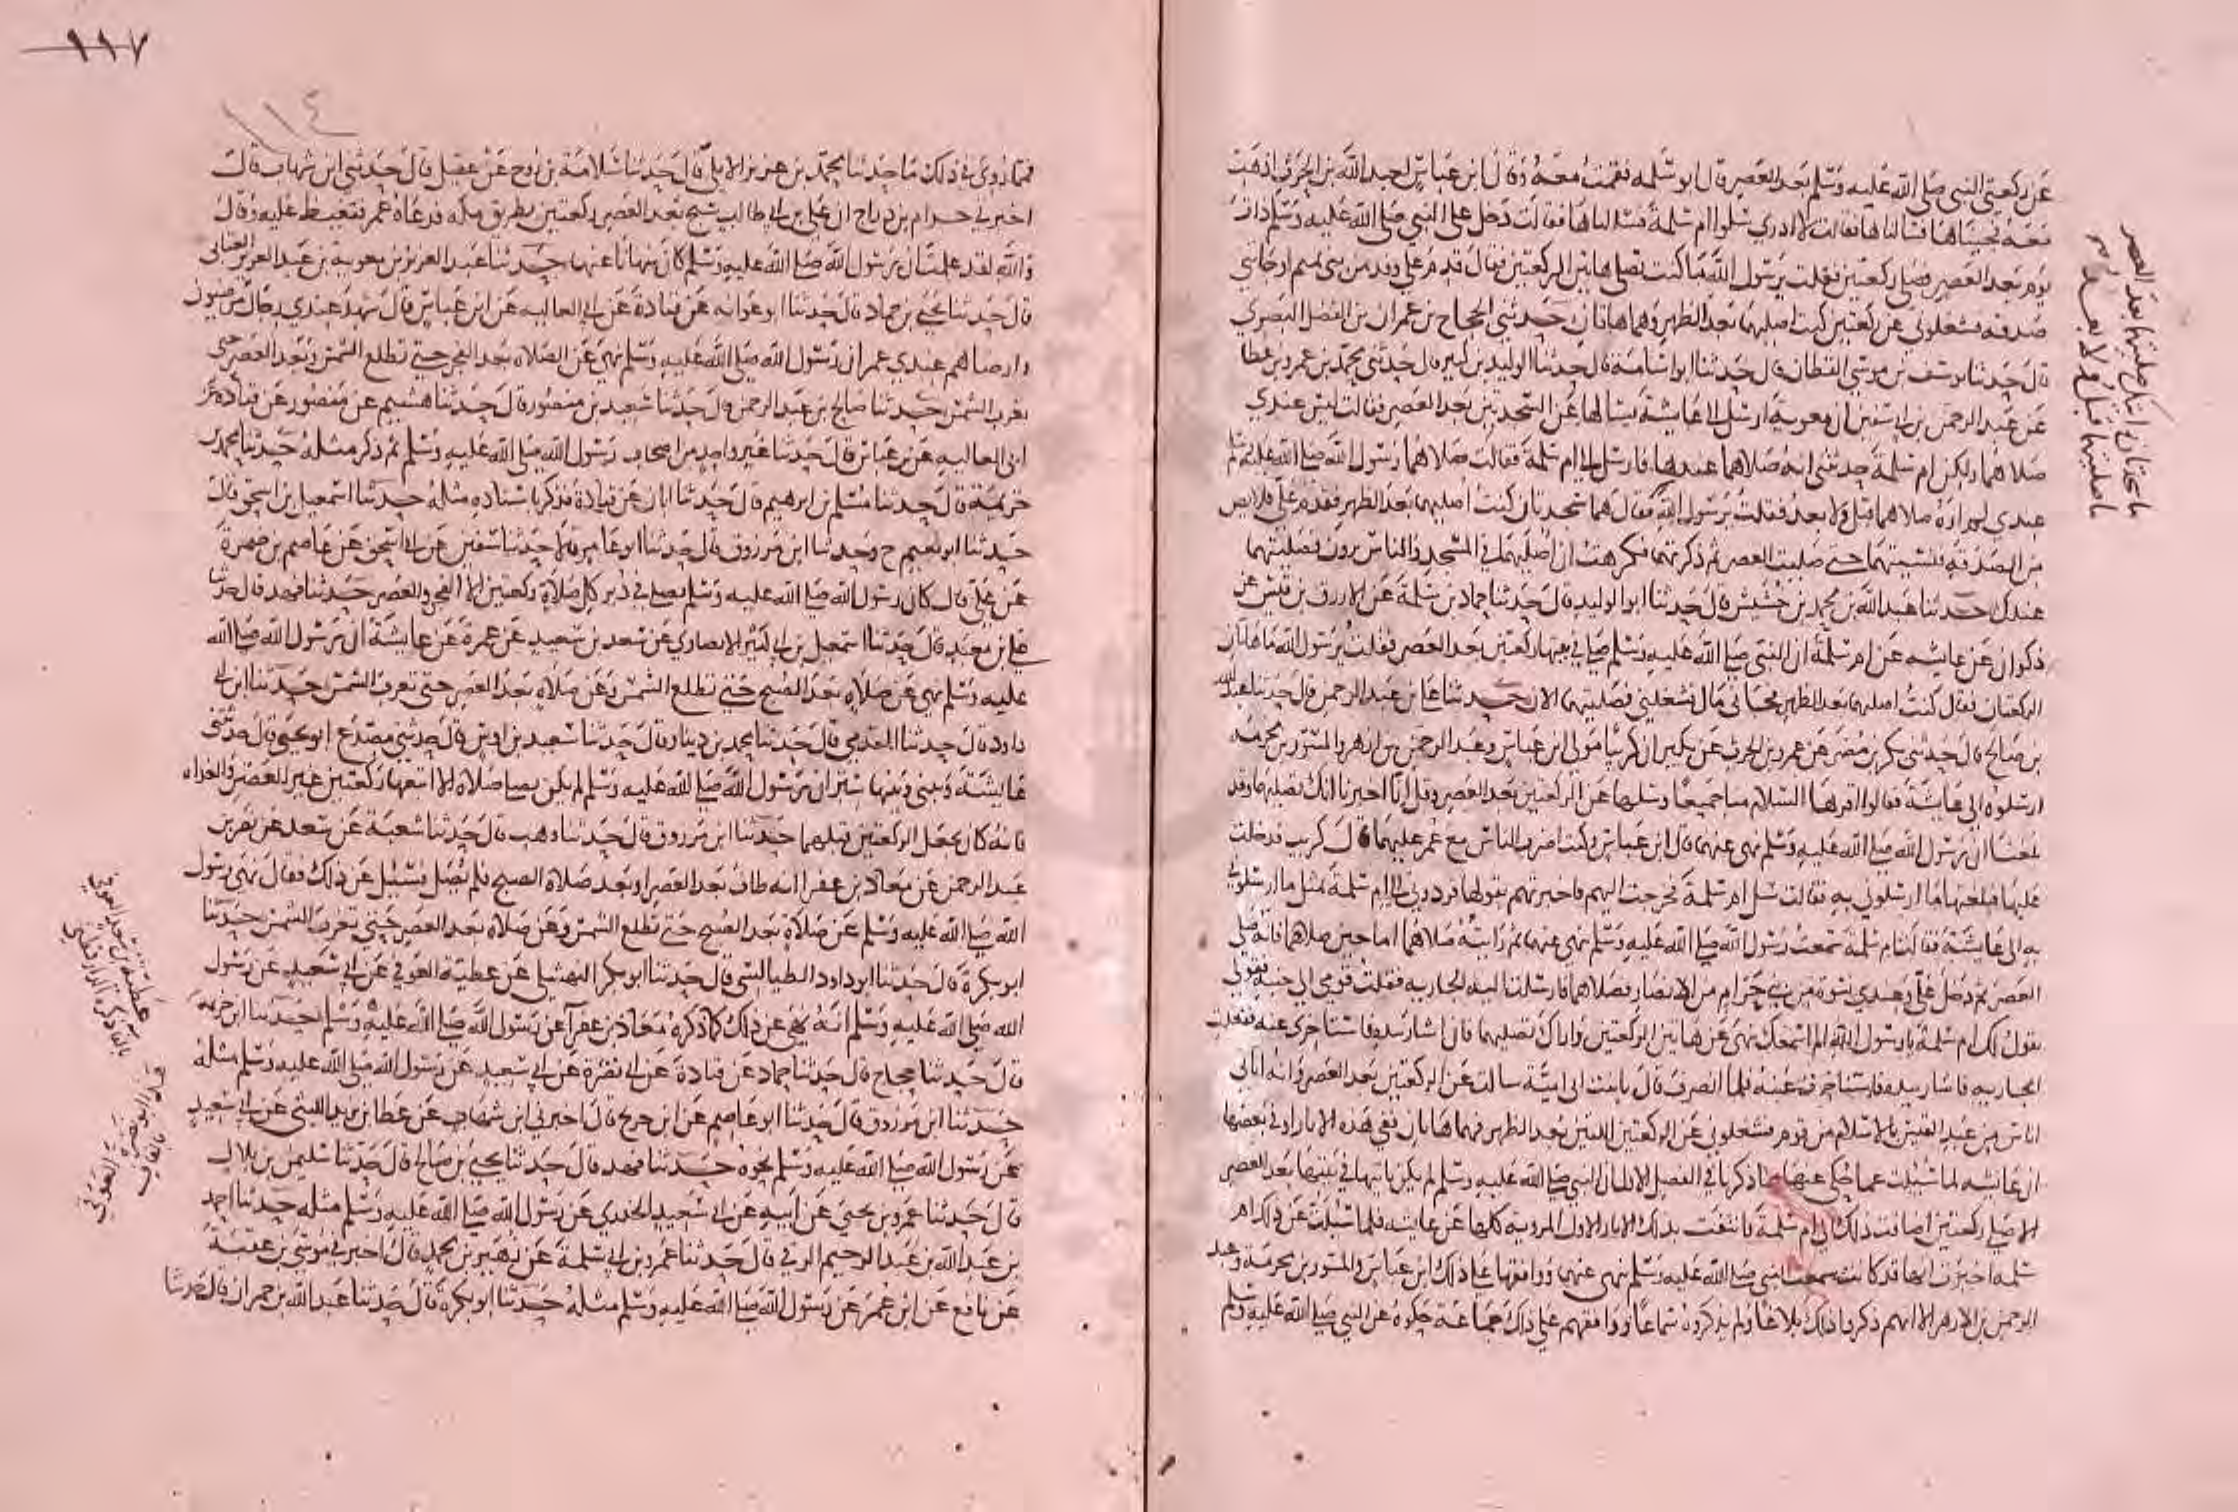 عن ركعتي النبي صلى الله عليه وسلم بعد العصر قال ابو سلمه فقمت معه وقال ابن عباس لعبد الله بن الحرث اذهب
معه فجيناها فسالناها فقالت لا ادري سلوا ام سلمة فسالناها فقالت دخل علي النبي صلى الله عليه وسلم ذات
يوم بعد العصر فصلى ركعتين فقلت يرسول الله ما كنت تصلي هاتين الركعتين فقال قدم علي وفد من بني تميم او جاتني
صدقة فشغلوني عن ركعتين كنت اصليهما بعد الظهر وهما هاتان حدثني الحجاج بن عمران بن الفضل البصري
قال حدثنا يوسف بن موسى القطان قال حدثنا ابو اسامة قال حدثنا الوليد بن كثير قال حدثني محمد بن عمرو بن عطا
عن عبد الرحمن بن ابي سفين ان معوية ارسل الى عايشة يسالها عن السجدتين بعد العصر فقالت ليس عندي
صلاهما ولكن ام سلمة حدثتني انه صلاهما عندها فارسل الى ام سلمة فقالت صلاهما رسول الله صلى الله عليه وسلم
عندي لم اره صلاهما قبل ولا بعد فقلت يرسول الله فقال هما سجدتان كنت اصليهما بعد الظهر فقدم علي قلايص
من الصدقة فنسيتهما حتى صليت العصر ثم ذكرتهما فكرهت ان اصليهما في المسجد والناس يرون فصليتهما
عندك حدثنا عبد الله بن محمد بن خشيش قال حدثنا ابو الوليد قال حدثنا حماد بن سلمة عن الازرق بن قيس عن
ذكوان عن عايشه عن ام سلمة ان النبي صلى الله عليه وسلم صلى في بيتها ركعتين بعد العصر فقلت يرسول الله ما هاتان
الركعتان فقال كنت اصليهما بعد الظهر فجاني مال فشغلني فصليتهما الان حدثنا علي بن عبد الرحمن قال حدثنا عبد الله
بن صالح قال حدثني بكر بن مضر عن عمرو بن الحرث عن بكير ان كريبا مولى ابن عباس وعبد الرحمن بن ازهر والمسور بن مخرمه
ارسلوه الى عايشة فقالوا اقراها السلام منا جميعا وسلها عن الركعتين بعد العصر وقل انا اخبرنا انك تصليهما وقد
بلغنا ان رسول الله صلى الله عليه وسلم نهى عنهما قال ابن عباس وكنت اضرب الناس مع عمر عليهما قال كريب فدخلت
عليها فبلغتها ما ارسلوني به فقالت سل ام سلمة فخرجت اليهم فاخبرتهم بقولها فردوني الى ام سلمة بمثل ما ارسلوني
به الى عايشة فقالت ام سلمة سمعت رسول الله صلى الله عليه وسلم نهى عنهما ثم رايته صلاهما اما حين صلاهما فانه صلى
العصر ثم دخل علي وعندي نسوة من بني حرام من الانصار فصلاهما فارسلت اليه الجاريه فقلت قومي الى جنبه فقولي
تقول لك ام سلمة يا رسول الله الم اسمعك نهى عن هاتين الركعتين واراك تصليهما فان اشار بيده فاستاخري عنه ففعلت
الجاريه فاشار بيده فاستاخرت عنه فلما انصرف قال يا بنت ابي امية سالت عن الركعتين بعد العصر وانه اتاني
اناس من عبد القيس بالاسلام من قومهم فشغلوني عن الركعتين اللتين بعد الظهر فهما هاتان ففي هذه الاثار او في بعضها
ان عايشه لما سئلت عما حكي عنها مما ذكرنا في الفصل الاول ان النبي صلى الله عليه وسلم لم يكن ياتيها في بيتها بعد العصر
الا صلى ركعتين اضافت ذلك الى ام سلمة فانتفت بذلك الاثار الاول المروية كلها عن عايشه فلما سئلت عن ذلك ام
سلمه اخبرت انها قد كانت سمعت النبي صلى الله عليه وسلم نهى عنهما ووافقها على ذلك ابن عباس والمسور بن مخرمة وعبد
الرحمن بن الازهر الا انهم ذكروا ذلك بلاغا ولم يذكروه سماعا ووافقهم على ذلك جماعة حكوه عن النبي صلى الله عليه وسلم
ما سجدتان رايتك صليتهما بعد العصر
ما صليتهما قبل ولا بعد
١١٧
١١٤
فمما روي في ذلك ما حدثنا محمد بن عزيز الايلي قال حدثنا سلامة بن روح عن عقيل قال حدثني ابن شهاب قال
اخبرني حرام بن دراج ان علي بن ابي طالب سبح بعد العصر ركعتين بطريق مكه فدعاه عمر فتغيظ عليه وقال
والله لقد علمت ان رسول الله صلى الله عليه وسلم كان ينهانا عنهما حدثنا عبد العزيز بن معوية بن عبد العزيز العتابي
قال حدثنا يحيى بن حماد قال حدثنا ابو عوانه عن قتادة عن ابي العاليه عن ابن عباس قال شهد عندي رجال مرضيون
وارضاهم عندي عمر ان رسول الله صلى الله عليه وسلم نهى عن الصلاه بعد الفجر حتى تطلع الشمس وبعد العصر حتى
تغرب الشمس حدثنا صالح بن عبد الرحمن قال حدثنا سعيد بن منصور قال حدثنا هشيم عن منصور عن قتادة عن
ابي العاليه عن بن عباس قال حدثنا غير واحد من اصحاب رسول الله صلى الله عليه وسلم ثم ذكر مثله حدثنا محمد بن
خزيمة قال حدثنا مسلم بن ابرهيم قال حدثنا ابان عن قتادة فذكر باسناده مثله حدثنا اسمعيل بن اسحق قال
حدثنا ابو نعيم ح وحدثنا ابن مرزوق قال حدثنا ابو عامر قالا حدثنا سفين عن ابي اسحق عن عاصم بن ضمرة
عن علي قال كان رسول الله صلى الله عليه وسلم يصلي في دبر كل صلاة ركعتين الا الفجر والعصر حدثنا فهد قال حدثنا
علي بن معبد قال حدثنا اسمعيل بن ابي كثير الانصاري عن سعد بن سعيد عن عمرة عن عايشة ان رسول الله صلى الله
عليه وسلم نهى عن صلاه بعد الصبح حتى تطلع الشمس وعن صلاه بعد العصر حتى تغرب الشمس حدثنا ابن ابي
داود قال حدثنا المقدمي قال حدثنا محمد بن دينار قال حدثنا سعيد بن اوس قال حدثني مصدع ابو يحيى قال حدثتني
عايشة وبيني وبينها ستر ان رسول الله صلى الله عليه وسلم لم يكن يصلي صلاة الا اتبعها ركعتين غير العصر والغداه
فانه كان يجعل الركعتين قبلهما حدثنا ابن مرزوق قال حدثنا وهب قال حدثنا شعبة عن سعد عن نصر بن
عبد الرحمن عن معاذ بن عفرا انه طاف بعد العصر او بعد صلاة الصبح فلم يصل فسئل عن ذلك فقال نهى رسول
الله صلى الله عليه وسلم عن صلاة بعد الصبح حتى تطلع الشمس وعن صلاة بعد العصر حتى تغرب الشمس حدثنا
ابو بكرة قال حدثنا ابو داود الطيالسي قال حدثنا ابو بكر النهشلي عن عطية العوفي عن ابي سعيد عن رسول
الله صلى الله عليه وسلم انه نهى عن ذلك كما ذكره معاذ بن عفرا عن رسول الله صلى الله عليه وسلم حدثنا ابن خزيمة
قال حدثنا حجاج قال حدثنا حماد عن قتادة عن ابي نضرة عن ابي سعيد عن رسول الله صلى الله عليه وسلم مثله
حدثنا ابن مرزوق قال حدثنا ابو عاصم عن ابن جريج قال اخبرني ابن شهاب عن عطا بن يزيد الليثي عن ابي سعيد
عن رسول الله صلى الله عليه وسلم نحوه حدثنا فهد قال حدثنا يحيى بن صالح قال حدثنا سليمن بن بلال
قال حدثنا عمرو بن يحيى عن ابيه عن ابي سعيد الخدري عن رسول الله صلى الله عليه وسلم مثله حدثنا احمد
بن عبد الله بن عبد الرحيم البرقي قال حدثنا عمرو بن ابي سلمة عن زهير بن محمد قال اخبرني موسى بن عقبة
عن نافع عن ابن عمر عن رسول الله صلى الله عليه وسلم مثله حدثنا ابو بكرة قال حدثنا عبد الله بن حمران قال حدثنا
عطية بن سعد العوفي
بالفا ذكره الدارقطني
ابو نضرة العوقي
بالقاف